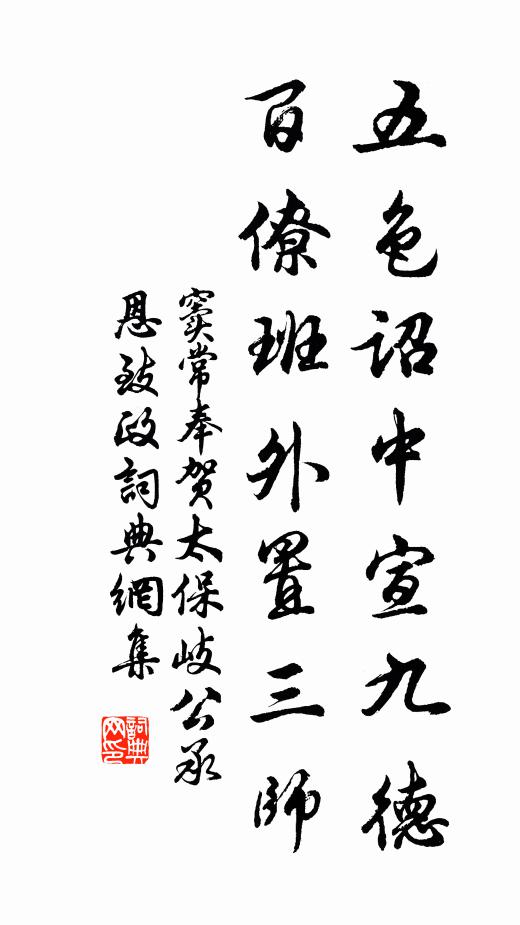 五色詔中宣九德
百僚班外置三師
竇常奉贺太保岐公承
恩致政詞典網集
詞典网印